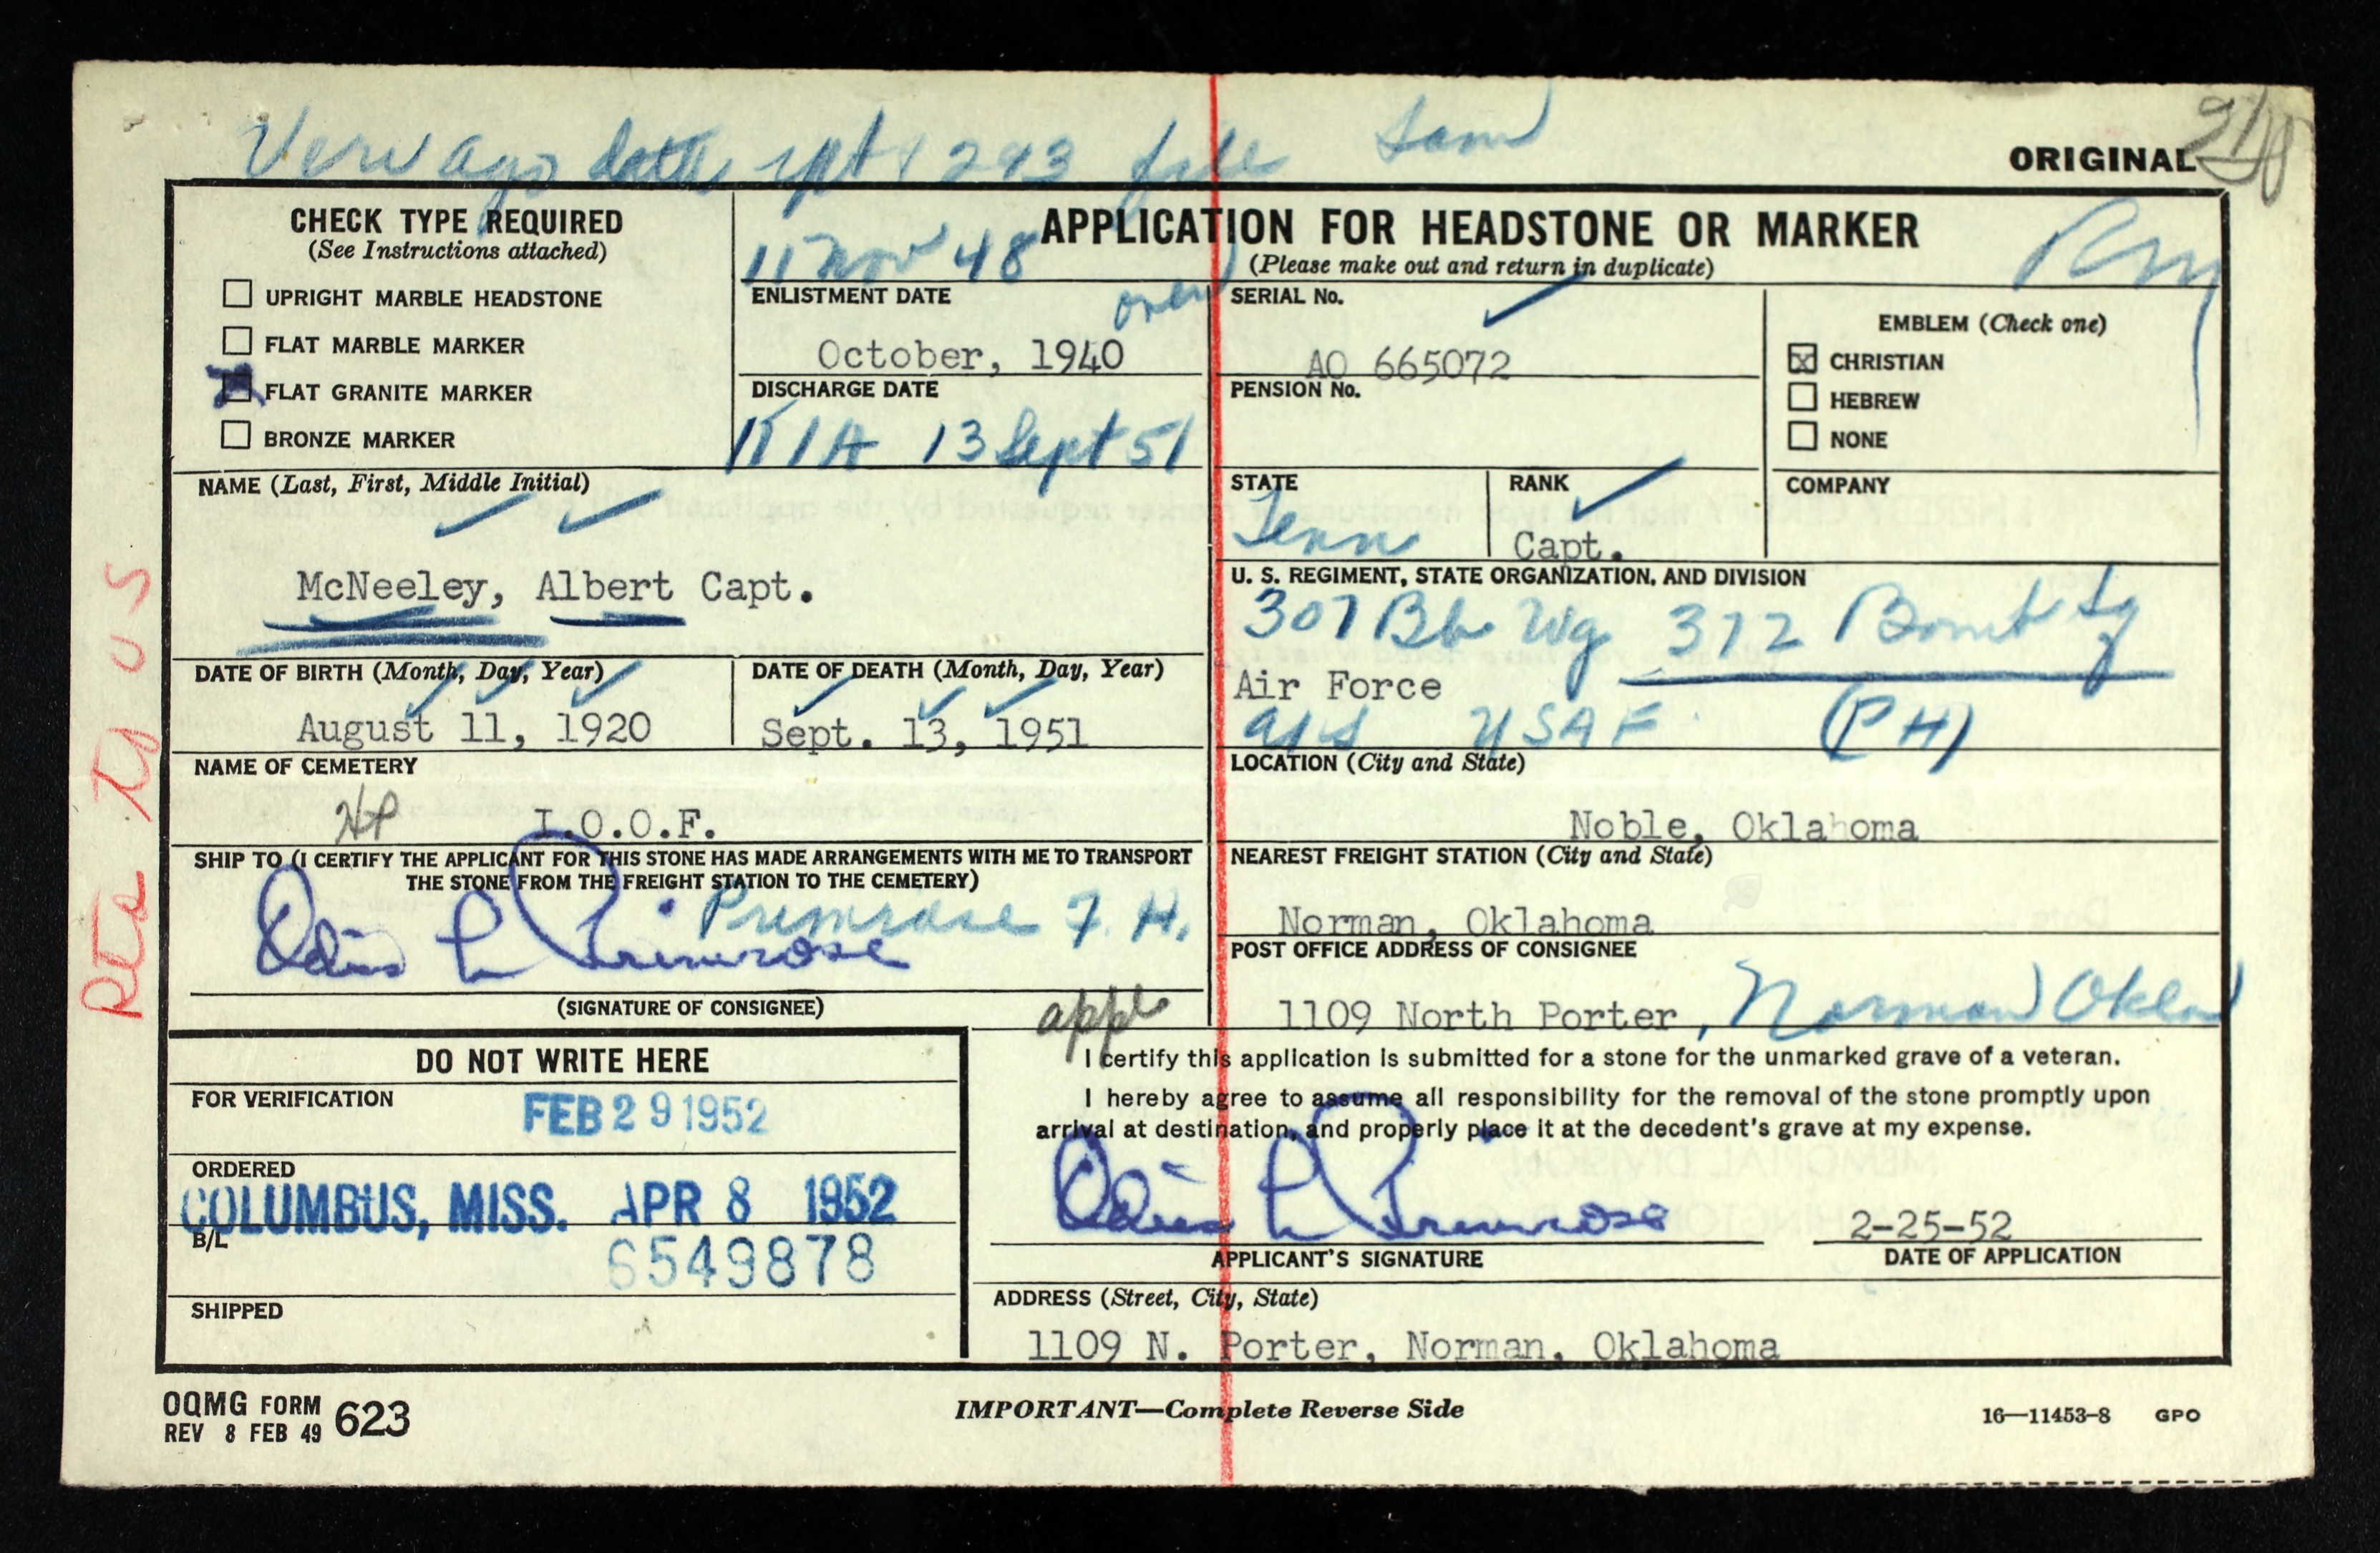 Veri ago data rpt 1293 file Sam
ORIGINAL
CHECK TYPE REQUIRED
(See Instructions attached)
UPRIGHT MARBLE HEADSTONE
FLAT MARBLE MARKER
FLAT GRANITE MARKER
BRONZE MARKER
APPLICATION FOR HEADSTONE OR MARKER
(Please make out and return in duplicate)
11 Nov 48
over
ENLISTMENT DATE
October, 1940
DISCHARGE DATE
KIA 13 Sept 51
SERIAL No.
AO 665072
PENSION No.
EMBLEM (Check one)
CHRISTIAN
HEBREW
NONE
NAME (Last, First, Middle Initial)
McNeeley, Albert Capt.
STATE
Tenn
RANK
Capt.
COMPANY
U. S. REGIMENT, STATE ORGANIZATION, AND DIVISION
307 Bb Wg 372 Bomb Sq
Air Force
USAF (PH)
DATE OF BIRTH (Month, Day, Year)
August 11, 1920
DATE OF DEATH (Month, Day, Year)
Sept. 13, 1951
NAME OF CEMETERY
I.O.O.F.
LOCATION (City and State)
Noble, Oklahoma
SHIP TO (I CERTIFY THE APPLICANT FOR THIS STONE HAS MADE ARRANGEMENTS WITH ME TO TRANSPORT
THE STONE FROM THE FREIGHT STATION TO THE CEMETERY)
Primrose F. H.
Odis L Primrose
(SIGNATURE OF CONSIGNEE)
NEAREST FREIGHT STATION (City and State)
Norman, Oklahoma
POST OFFICE ADDRESS OF CONSIGNEE
1109 North Porter, Norman Okla
appl
DO NOT WRITE HERE
FOR VERIFICATION
FEB 29 1952
ORDERED
COLUMBUS, MISS. APR 8 1952
B/L
6549878
SHIPPED
I certify this application is submitted for a stone for the unmarked grave of a veteran.
I hereby agree to assume all responsibility for the removal of the stone promptly upon
arrival at destination, and properly place it at the decedent's grave at my expense.
Odis L Primrose
2-25-52
APPLICANT'S SIGNATURE
DATE OF APPLICATION
ADDRESS (Street, City, State)
1109 N. Porter, Norman, Oklahoma
OQMG FORM 623
REV 8 FEB 49
IMPORTANT—Complete Reverse Side
16—11453-8 GPO